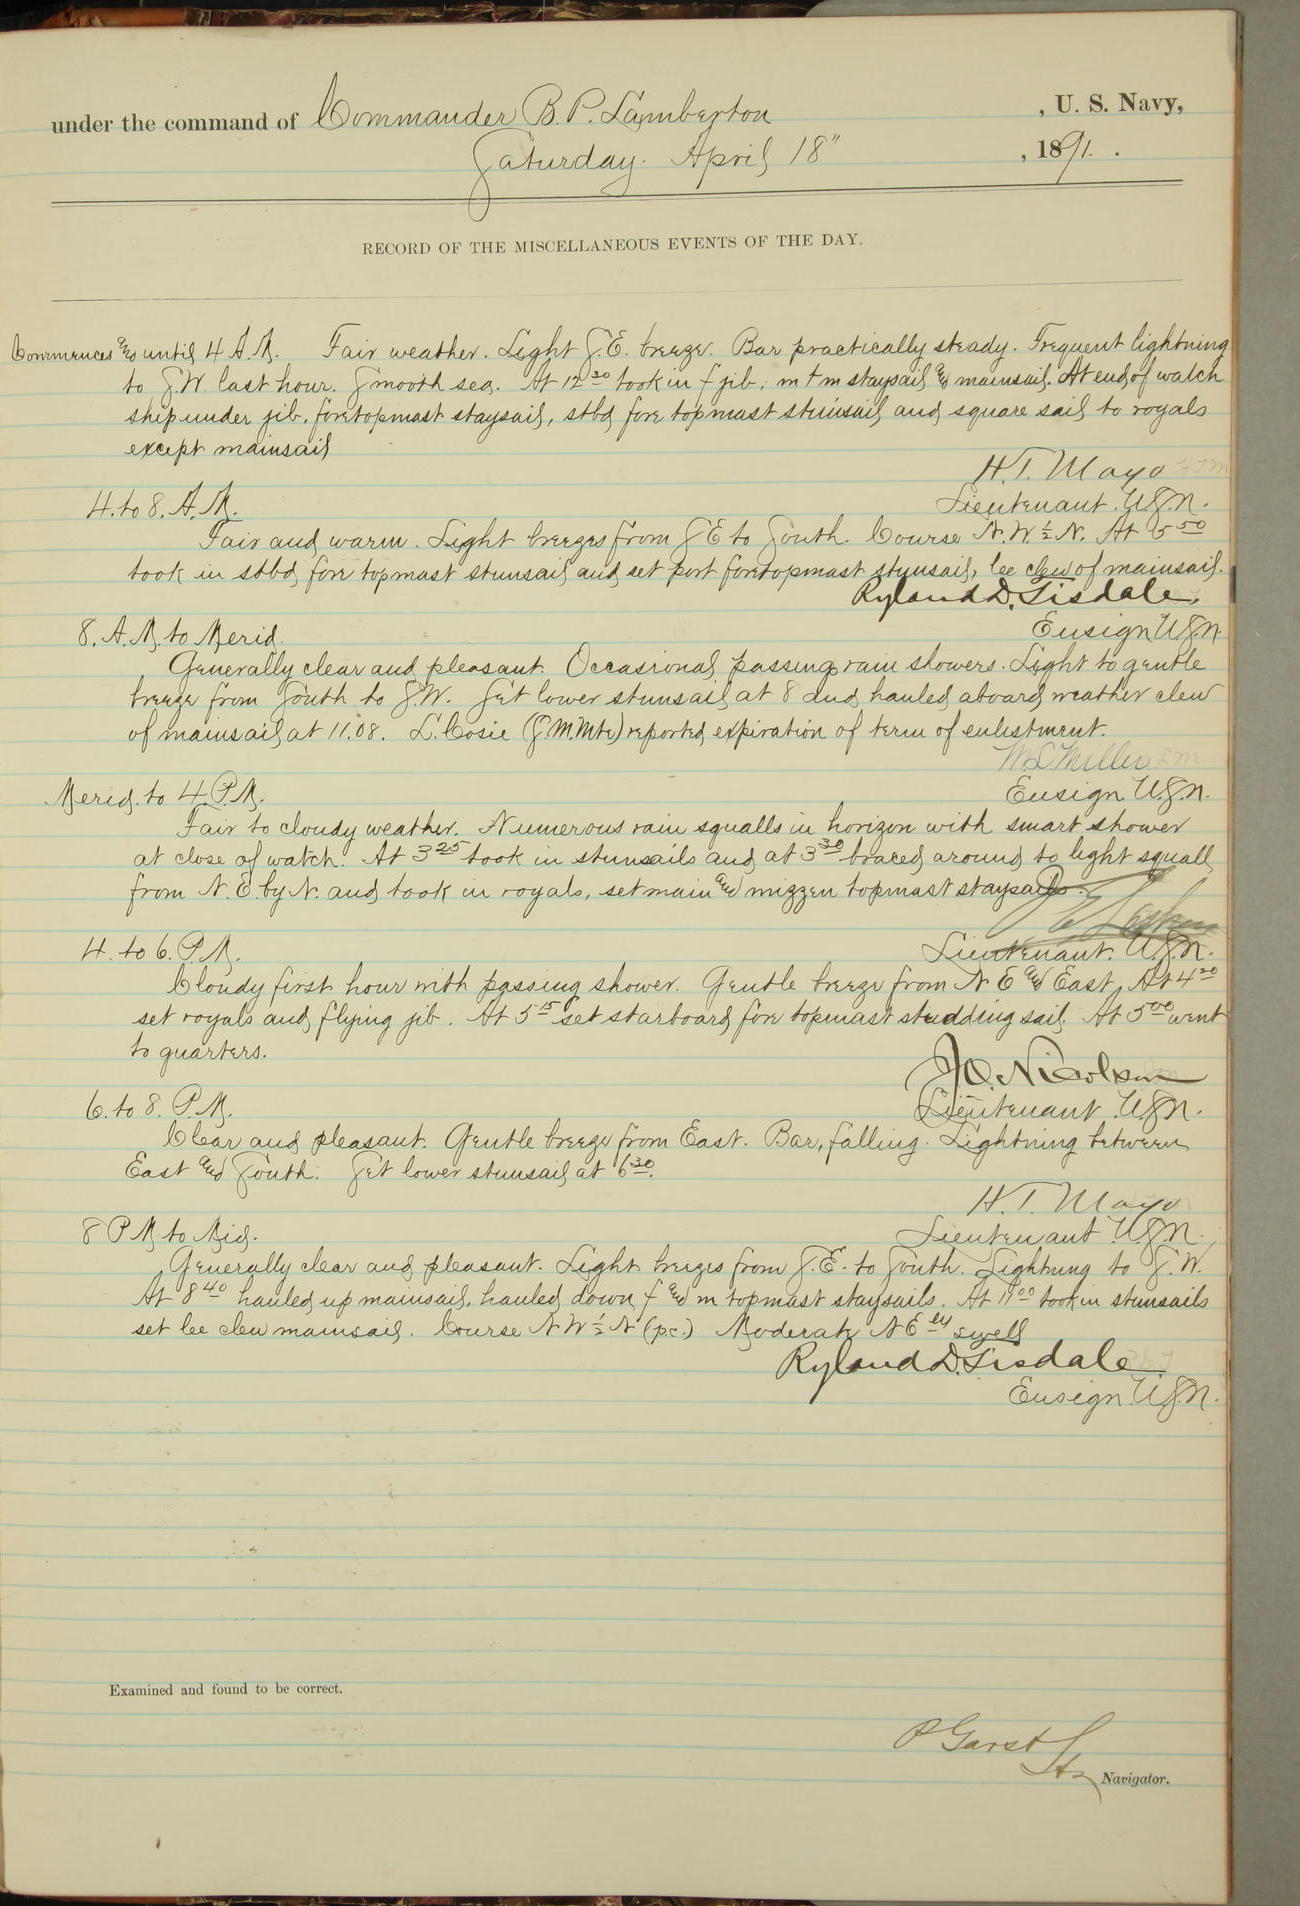 under the command of Commander B. P. Lamberton , U. S. Navy,
Saturday. April 18" , 1891.
RECORD OF THE MISCELLANEOUS EVENTS OF THE DAY.
Commences and until 4 A.M. Fair weather. Light S.E. breeze. Bar practically steady. Frequent lightning
to S.W. last hour. Smooth sea. At 12 30 took in f jib, m t m staysail and mainsail. At end of watch
ship under jib, foretopmast staysail, stbd fore topmast stunsail and square sail to royals
except mainsail
H. T. Mayo
4. to 8. A.M. Lieutenant. U.S.N.
Fair and warm. Light breezes from SE to South. Course N.W. ½ N. At 5 50
took in stbd fore topmast stunsail and set port foretopmast stunsail, lee clew of mainsail.
Ryland D. Tisdale,
8. A.M. to Merid. Ensign U.S.N.
Generally clear and pleasant. Occasional passing rain showers. Light to gentle
breeze from South to S.W. Set lower stunsail at 8 and hauled aboard weather clew
of mainsail at 11.08. L. Cosie (S.M.Mte) reported expiration of term of enlistment.
M L Miller
Merid. to 4. P.M. Ensign U.S.N.
Fair to cloudy weather. Numerous rain squalls in horizon with smart shower
at close of watch. At 3 25 took in stunsails and at 3 30 braced around to light squall
from N.E. by N. and took in royals, set main and mizzen topmast staysails.
4. to 6. P.M. Lieutenant. U.S.N.
Cloudy first hour with passing shower. Gentle breeze from N E and East, At 4 20
set royals and flying jib. At 5 15 set starboard fore topmast studding sail. At 5 00 went
to quarters.
J O. Nicolson
6. to 8. P.M. Lieutenant. U.S.N.
Clear and pleasant. Gentle breeze from East. Bar, falling. Lightning between
East and South. Set lower stunsail at 6 30.
H. T. Mayo
8 P M to Mid. Lieutenant U.S.N.
Generally clear and pleasant. Light breezes from S.E. to South. Lightning to S.W.
At 8 40 hauled up mainsail, hauled down f and m topmast staysails. At 11 00 took in stunsails
set lee clew mainsail. Course N W ½ N (p.c.) Moderate N E ly swell
Ryland D. Tisdale
Ensign. U.S.N.
Examined and found to be correct.
P Garst
Lt Navigator.